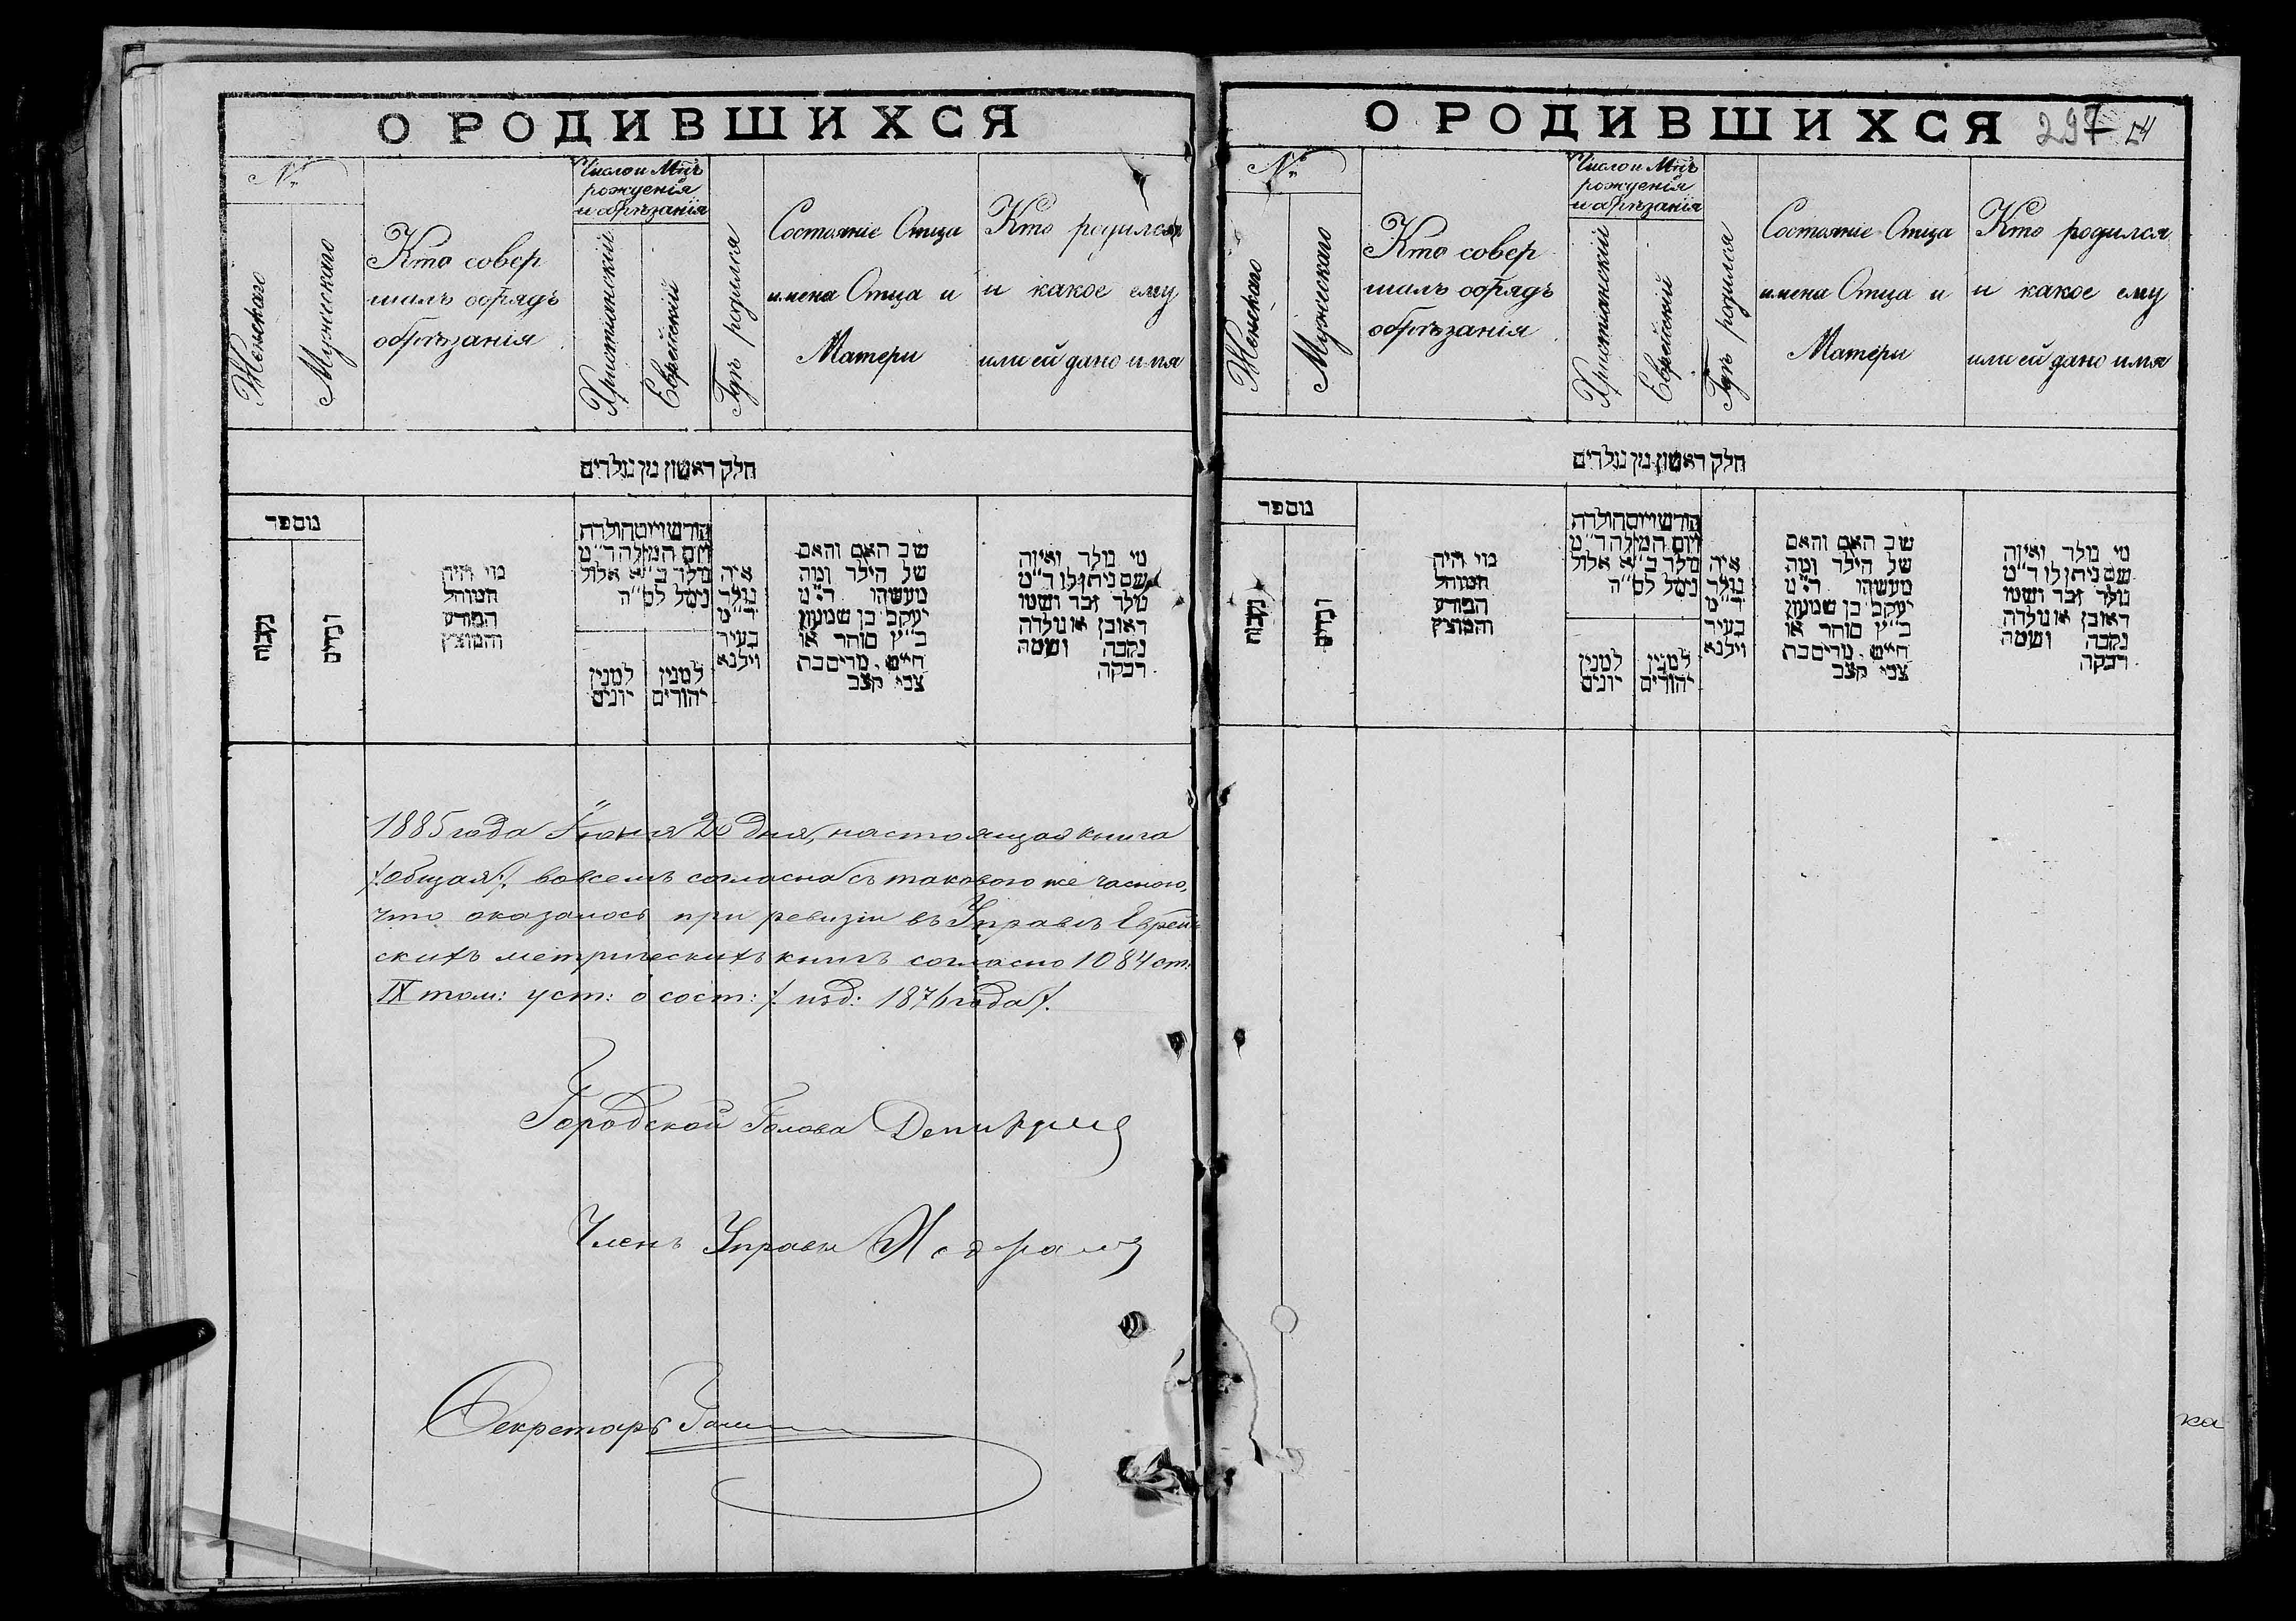 О РОДИВШИХСЯ
№
Женскаго
Мужескаго
Кто совер
шалъ обрядъ
обрѣзанія
Число и Мцъ
рожденія
и обрѣзанія
Христіанскій
Еврейскій
Гдѣ родился
Состояніе Отца
имена Отца и
Матери
Кто родился
и какое ему
или ей дано имя
חלק ראשון מן נולדים
נוספר
נקבות
זכרים
מי היה
המוהל
הפורע
והמוצץ
חודש ויום הולדת
ויום המילה ד״מ
נולד ב״א אלול
נימל לס״ה
למנין
יונים
למנין
יהודים
איה
נולד
ד״מ
בעיר
וילנא
שב האם והאם
של הילד ומה
מעשהו ד״מ
יעקב בן שמעון
כ״ץ סוחר או
חייט, מרים בת
צבי קצב
מי נולד ואיזה
שם ניתן לו ד״מ
נולד זכר ושמו
ראובן או נולדה
נקבה ושמה
רבקה
1885 года Іюня 20 дня, настоящая книга
/:общая:/ вовсемъ согласна съ таковою же часною,
что оказалось при ревизіи въ Управѣ Еврей
скихъ метрическихъ книгъ согласно 1084 ст:
IX том: уст: о сост: /: изд: 1876 года /.
Городской Голова
Членъ Управы
Секретарь
О РОДИВШИХСЯ 297
№
Женскаго
Мужескаго
Кто совер
шалъ обрядъ
обрѣзанія
Число и Мцъ
рожденія
и обрѣзанія
Христіанскій
Еврейскій
Гдѣ родился
Состояніе Отца
имена Отца и
Матери
Кто родился
и какое ему
или ей дано имя
חלק ראשון מן נולדים
נוספר
נקבות
זכרים
מי היה
המוהל
הפורע
והמוצץ
חודש ויום הולדת
ויום המילה ד״מ
נולד ב״א אלול
נימל לס״ה
למנין
יונים
למנין
יהודים
איה
נולד
ד״מ
בעיר
וילנא
שב האם והאם
של הילד ומה
מעשהו ד״מ
יעקב בן שמעון
כ״ץ סוחר או
חייט, מרים בת
צבי קצב
מי נולד ואיזה
שם ניתן לו ד״מ
נולד זכר ושמו
ראובן או נולדה
נקבה ושמה
רבקה
ка